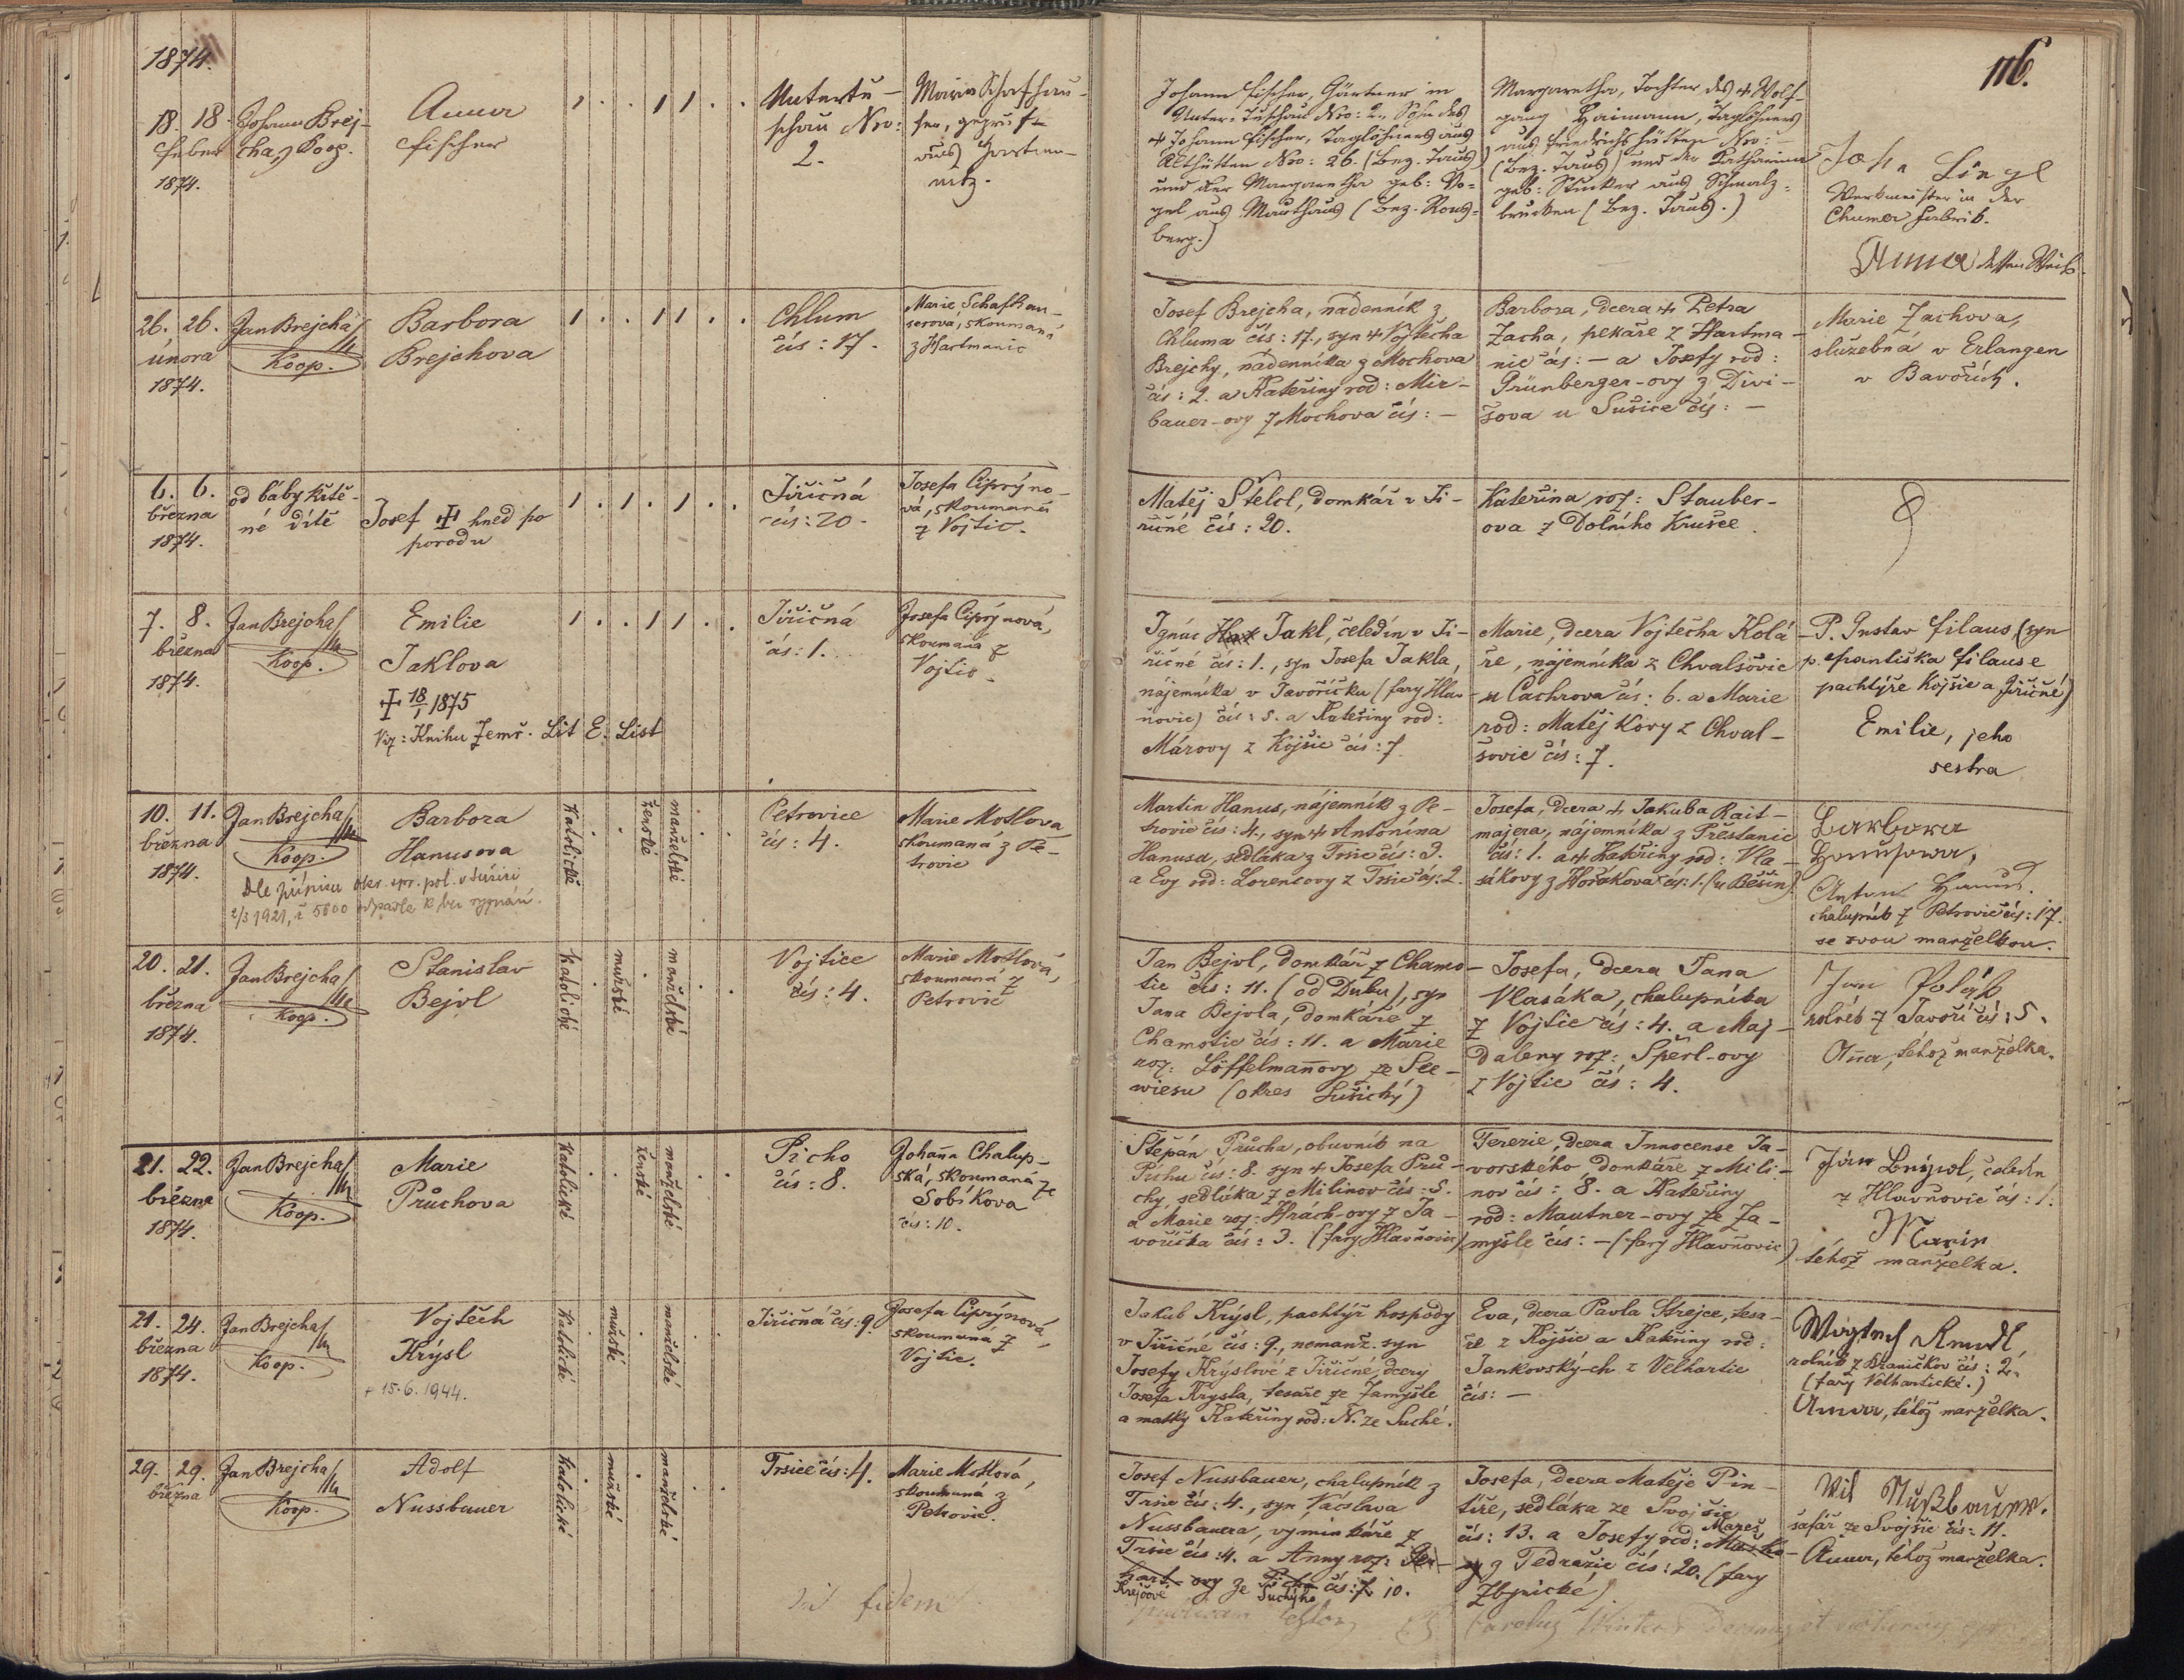 1874.
116.
18. 18.
Feber
1874.
Johann Brej-
cha, Koop.
Anna
Fischer
Untertě-
schau Nro:
2.
Maria Schafhau-
ser, geprüft
aus Hartma-
nitz.
Johann Fischer, Gärtner in
Unter-Tuschau Nro: 2., Sohn des
+ Johann Fischer, Taglöhners aus
Althütten Nro: 26. (Bez. Taus)
und der Margaretha geb: Vo-
gel aus Mauthaus (Bez. Rons-
berg.)
Margaretha, Tochter des + Wolf-
gang Haimann, Taglöhners
aus Friedrichshütten Nro: -
(Bez. Taus) und der Katharina
geb: Stucker aus Schmalz-
brucken (Bez. Taus.)
Joh. Lingl
Werkmeister in der
Chumer Fabrik.
Anna dessen Weib.
26. 26.
února
1874.
Jan Brejcha
Koop.
Barbora
Brejchova
Chlum
čís: 17.
Marie Schafhau-
serová, skoumaná
z Hartmanic
Josef Brejcha, nadenník z
Chluma čís: 17., syn + Vojtěcha
Brejchy, nadenníka z Mochova
čís: 2. a Kateřiny rod: Mir-
bauer-ovy z Mochova čís: -
Barbora, dcera + Petra
Zacha, pekaře z Hartma-
nic čís: - a Josefy rod:
Grünberger-ovy z Divi-
šova u Sušice čís: -
Marie Zachova,
služebná v Erlangen
v Bavořích.
6. 6.
března
1874.
od báby křtě-
né dítě
Josef + hned po
porodu
Jiřičná
čís: 20.
Josefa Ciprýno-
vá, skoumaná
z Vojtic.
Matěj Štelcl, domkář v Ji-
řičné čís: 20.
Kateřina roz: Stauber-
ova z Dolního Krušce.
7. 8.
března
1874.
Jan Brejcha
Koop.
Emilie
Jaklova
+ 18/1 1875
Viz: Knihu Zemř. Lit E. List
Jiřičná
čís: 1.
Josefa Ciprýnová,
skoumaná z
Vojtic.
Ignác Jakl, čeledín v Ji-
řičné čís: 1., syn Josefa Jakla,
nájemníka v Javoříčku (fary Hlav-
ňovic) čís: 5. a Kateřiny rod:
Márovy z Kojšic čís: 7.
Marie, dcera Vojtěcha Kolá-
ře, nájemníka z Chvalšovic
u Čachrova čís: 6. a Marie
rod: Matěj Kory z Chval-
šovic čís: 7.
P. Gustav Filaus (syn
p. Františka Filause
pachtýře Kojšic a Jiřičné)
Emilie, jeho
sestra
10. 11.
března
1874.
Jan Brejcha
Koop.
Barbora
Hanusova
Dle přípisu okr. spr. pol. v Sušici
2/3 1921, č 5800
Katolické
ženské
manželské
Petrovice
čís: 4.
Marie Motlova
skoumaná z Pe-
trovic
Martin Hanus, nájemník z Pe-
trovic čís: 4., syn + Antonína
Hanusa, sedláka z Tršic čís: 3.
a Evy rod: Lorencovy z Tršic čís: 2.
Josefa, dcera + Jakuba Rait-
majera, nájemníka z Přestanic
čís: 1. a + Kateřiny rod: Vla-
sákovy z Hořákova čís: 1. (u Běšin)
Barbora
Hanusowa,
Anton Hanus.
chalupník z Petrovic čís: 17.
se svou manželkou.
20. 21.
března
1874.
Jan Brejcha
Koop.
Stanislav
Bejvl
Katolické
mužské
manželské
Vojtice
čís: 4.
Marie Motlová,
skoumaná z
Petrovic
Jan Bejvl, domkář z Chamo-
tic čís: 11. (od Dubu), syn
Jana Bejvla, domkáře z
Chamotic čís: 11. a Marie
roz: Löffelmanovy ze See-
wiesu (okres Sušický)
Josefa, dcera Jana
Vlasáka, chalupníka
z Vojtic čís: 4. a Maj-
daleny roz: Šperl-ovy
z Vojtic čís: 4.
Jan Polák
rolník z Javoří čís: 5.
Anna, tehož manželka.
21. 22.
března
1874.
Jan Brejcha
Koop.
Marie
Průchova
Katolické
ženské
manželské
Picho
čís: 8.
Johana Chalup-
ská, skoumaná ze
Sobíkova
čís: 10.
Štěpán Průcha, obuvník na
Píchu čís: 8. syn + Josefa Prů-
chy, sedláka z Milinov čís: 5.
a Marie roz: Hrach-ovy z Ja-
voříčka čís: 3. (fary Hlavňovic)
Terezie, dcera Innocense Ja-
vorského, domkáře z Mili-
nov čís: 8. a Kateřiny
rod: Mautner-ovy ze Za-
myšle čís: - (fary Hlavňovic)
čeledín
z Hlavňovic čís: 1.
Marie
téhož manželka.
21. 24.
března
1874.
Jan Brejcha
Koop.
Vojtěch
Krýsl
+ 15.6.1944.
Katolické
mužské
manželské
Jiřičná čís: 9.
Josefa Ciprýnová,
skoumana z
Vojtic.
Jakub Krýsl, pachtýř hospody
v Jiřičné čís: 9., nemanž. syn
Josefy Krýslové z Jiřičné, dcery
Josefa Krysla, tesaře ze Zamyšle
a matky Kateřiny rod: N. ze Suché.
Eva, dcera Pavla Strejce, tesa-
ře z Kojšic a Kateřiny rod:
Jankovský-ch z Velhartic
čís: -
rolník z Braníčkov čís: 2.
(fary Velhartické.)
Anna, téhož manželka.
29. 29.
března
Jan Brejcha
Koop.
Adolf
Nussbauer
Katolické
mužské
manželské
Tršice čís: 4.
Marie Motlová,
skoumaná z
Petrovic.
Josef Nussbauer, chalupník z
Tršic čís: 4., syn Václava
Nussbauera, výminkáře z
Tršic čís: 4. a Anny roz:
ze čís: 10.
Krejčové Suchýho
Josefa, dcera Matěje Pin-
tíře, sedláka ze Svojšic
čís: 13. a Josefy rod: Mareš
z Tedražic čís: 20. (fary
Zbynické)
Vít Nußbauer.
šafář ze Svojšic čís: 11.
Anna, téhož manželka.
fidem
Carolus Winter